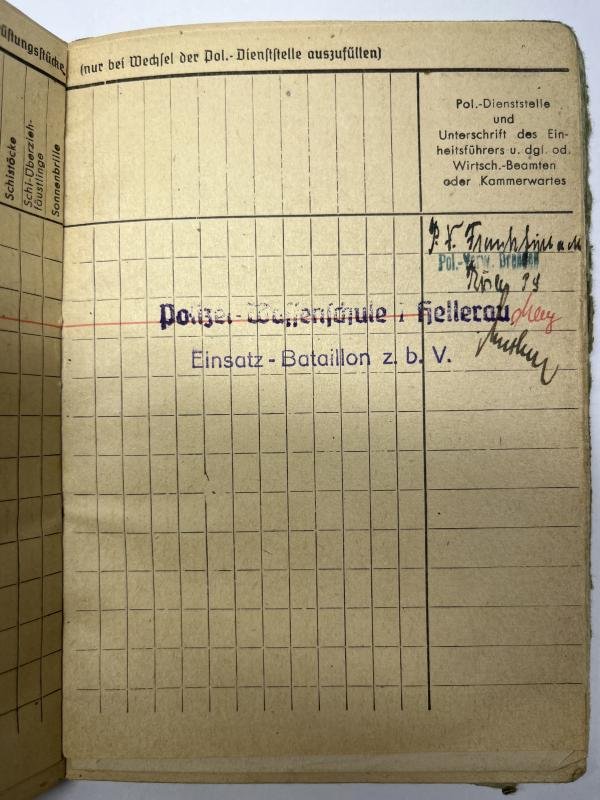 üstungsstücke
(nur bei Wechsel der Pol.-Dienststelle auszufüllen)
Schistöcke
Schi-Überzieh-
fäustlinge
Sonnenbrille
Pol.-Dienststelle
und
Unterschrift des Ein-
heitsführers u. dgl. od.
Wirtsch.-Beamten
oder Kammerwartes
P. V.
Pol.-Verw. Dresden
Polizei-Waffenschule I Hellerau
Einsatz-Bataillon z. b. V.